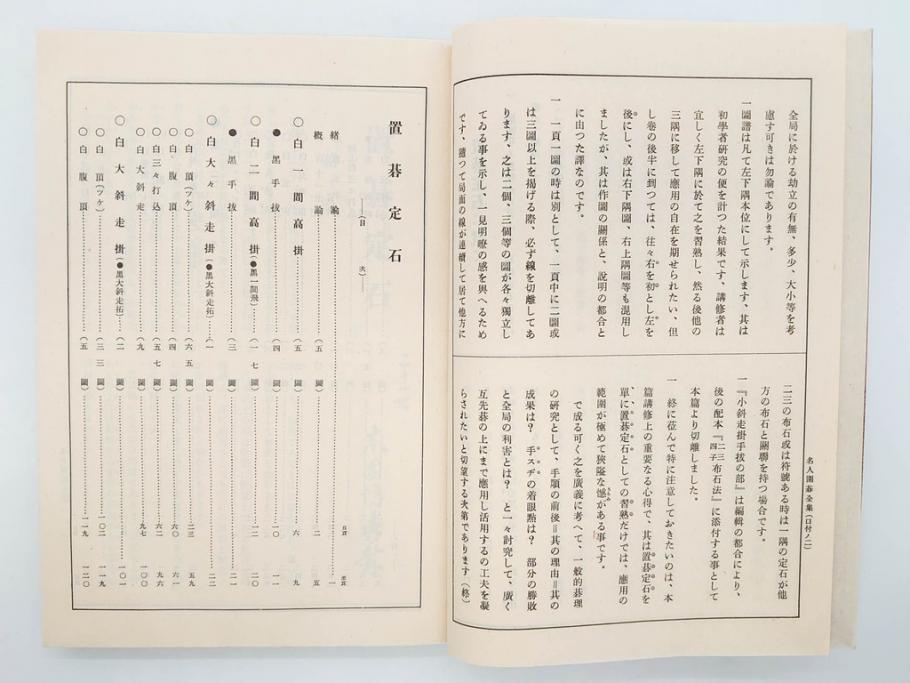 名人圍碁全集(口付ノ二)
全局に於ける劫立の有無、多少、大小等を考
慮す可きは勿論であります。
一 圖譜は凡て左下隅本位にして示します、其は
初學者研究の便を計つた結果です、講修者は
宜しく左下隅に於て之を習熟し、然る後他の
三隅に移して應用の自在を期せられたい、但
し卷の後半に到つては、往々右を初とし左を
後にし、或は右下隅圖、右上隅圖等も混用し
ましたが、其は作圖の關係と、說明の都合と
に由つた譯なのです。
一 一頁一圖の時は別として、一頁中に二圖或
は三圖以上を揭げる際、必ず線を切離してあ
ります、之は二個、三個等の圖が各々獨立し
てゐる事を示し、一見明瞭の感を與へるため
です、隨つて局面の線が連續して居て他方に
二三の布石或は符號ある時は一隅の定石が他
方の布石と關聯を持つ場合です。
一 『小斜走掛手拔の部』は編輯の都合により、
後の配本『二三四子布石法』に添付する事として
本篇より切離しました。
一 終に莅んで特に注意しておきたいのは、本
篇講修上の重要なる心得で、其は置碁定石を
單に、置碁定石としての習熟だけでは、應用の
範圍が極めて狹隘な憾がある事です。
で成る可く之を廣義に考へて、一般的碁理
の研究として、手順の前後=其の理由=其の
成果は? 手スヂの着眼點は? 部分の勝敗
と全局の利害とは? と一々討究して、廣く
互先碁の上にまで應用し活用するの工夫を凝
らされたいと切望する次第であります(終)
置碁定石
―(目次)―
緒論 一
概論 (五圖) 二 五
○白一間高掛 (五圖) 六 九
●黑手拔 (一七圖) 一〇 一一
○白二間高掛(●黑一間飛) (一七圖) 一二 二〇
●黑手拔 (三圖) 二一 二一
○白大々斜走掛(●黑大斜走拓) (一圖) 二二 二二
○白頂(ツケ) (六五圖) 二三 五九
○白腹頂 (四圖) 六〇 六一
○白三々打込 (五七圖) 六二 九六
○白大斜走 (九圖) 九七 一〇〇
○白大斜走掛(●黑大斜走拓) (二圖) 一〇一
○白頂(ツケ) (三三圖) 一〇二 一一九
○白腹頂 (五圖) 一一九 一二〇